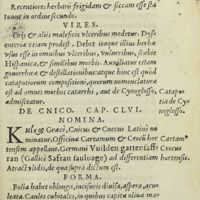 Recentiores herbarii frigidam & siccam esse sta
tuunt in ordine secundo.
VIRES.
Oris & aliis maleficis ulceribus medetur. Dys
enteria etiam prodest. Debet itaque illius herba
usus in omnibus ulceribus, vulneribus, Scabie
Hispanica, & similibus morbis. Auxiliatur etiam
gonorrhœæ & destillationibus atque hinc est quòd
catapotiorum compositioni, quorum nomenclatura
est ad omnes morbos catarrhi, aut de Cynoglosso,
admisceatur.
Catapo-
tia de Cy-
noglosso.
DE CNICO. CAP. CLVI.
NOMINA.
Κνῆκος Græcè, Cnicus & Cnecus Latinè no
minatur. Officinæ Cartamum & Crocū hor
tensem appellant. Germani Vuilden gartensaff-
ran (Gallicè Safran sauluage) ad differentiam
Atractylidis, de qua suprà dictum est.
Cartam9
Crocus
hortensis.
FORMA.
Folia habet oblonga, incisuris divisa, aspera, acu-
leata. Caules cubitales,